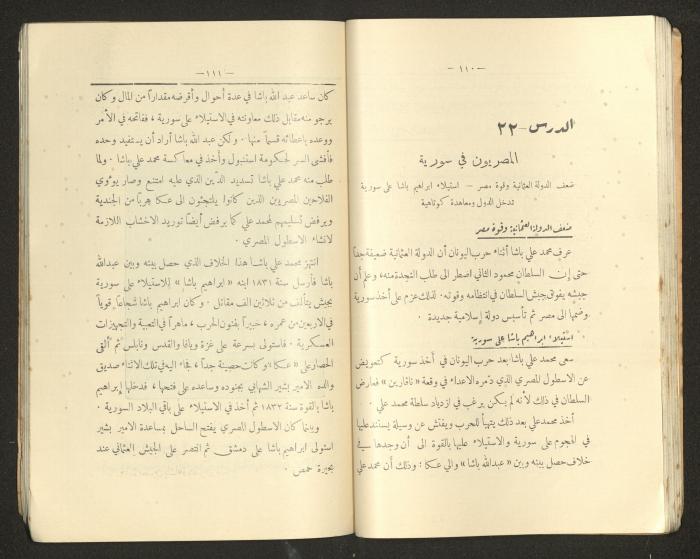 — ١١٠ —
الدرس – ٢٢
المصريون في سورية
ضعف الدولة العثمانية وقوة مصر – استيلاء ابراهيم باشا على سورية
تدخل الدول ومعاهدة كوتاهية
ضعف الدولة العثمانية وقوة مصر
عرف محمد علي باشا أثناء حرب اليونان أن الدولة العثمانية ضعيفة جداً
حتى إن السلطان محمود الثاني اضطر الى طلب النجدة منه، وعلم أن
جيشه يفوق جيش السلطان في انتظامه وقوته. لذلك عزم على أخذ سورية
وضمها الى مصر ثم تأسيس دولة إسلامية جديدة.
استيلاء ابراهيم باشا على سورية
سعى محمد علي باشا بعد حرب اليونان في أخذ سورية كتعويض
عن الاسطول المصري الذي دمره الاعداء في وقعة «نافارين» فعارض
السلطان في ذلك لأنه لم يكن يرغب في ازدياد سلطة محمد علي.
أخذ محمد علي بعد ذلك يتهيأ للحرب ويفتش عن وسيلة يستند عليها
في الهجوم على سورية والاستيلاء عليها بالقوة الى أن وجدها في
خلاف حصل بينه وبين «عبد الله باشا» والي عكا: وذلك أن محمد علي
— ١١١ —
كان ساعد عبد الله باشا في عدة أحوال وأقرضه مقداراً من المال وكان
يرجو منه مقابل ذلك معاونته في الاستيلاء على سورية، ففاتحه في الأمر
ووعده باعطائه قسماً منها. ولكن عبد الله باشا أراد أن يستفيد وحده
فأفشى السر لحكومة استنبول وأخذ في معاكسة محمد علي باشا. ولما
طلب منه محمد علي باشا تسديد الدين الذي عليه امتنع وصار يوئوي
الفلاحين المصريين الذين كانوا يلتجئون الى عكا هرباً من الجندية
ويرفض تسليمهم لمحمد علي كما يرفض أيضاً توريد الاخشاب اللازمة
لانشاء الاسطول المصري.
انتهز محمد علي باشا هذا الخلاف الذي حصل بينه وبين عبد الله
باشا فأرسل سنة ١٨٣١ ابنه «ابراهيم باشا» للاستيلاء على سورية
بجيش يتألف من ثلاثين الف مقاتل. وكان ابراهيم باشا شجاعاً قوياً
في الاربعين من عمره، خبيراً بفنون الحرب، ماهراً في التعبية والتجهيزات
العسكرية. فاستولى بسرعة على غزة ويافا والقدس ونابلس ثم ألقى
الحصار على «عكا» وكانت حصينة جداً، فجاء اليه في تلك الاثناء صديق
والده الامير بشير الشهابي بجنوده وساعده على فتحها، فدخلها إبراهيم
باشا بالقوة سنة ١٨٣٢ ثم أخذ في الاستيلاء على باقي البلاد السورية.
وبينما كان الاسطول المصري يفتح الساحل بمساعدة الامير بشير
استولى ابراهيم باشا على دمشق ثم انتصر على الجيش العثماني عند
بحيرة حمص.